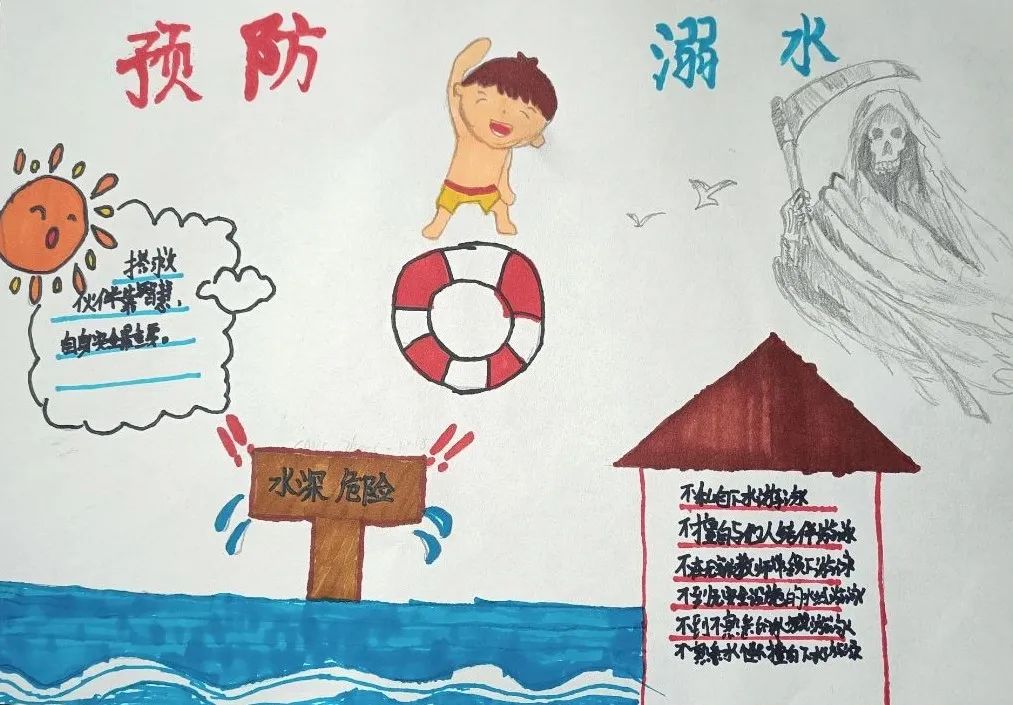 预防 溺水
搭救
伙伴靠智慧，
自身安全最重要。
水深危险
不私自下水游泳
不擅自与他人结伴游泳
不在无家长教师带领下游泳
不到无安全设施的水域游泳
不到不熟悉的水域游泳
不熟悉水性不擅自下水施救